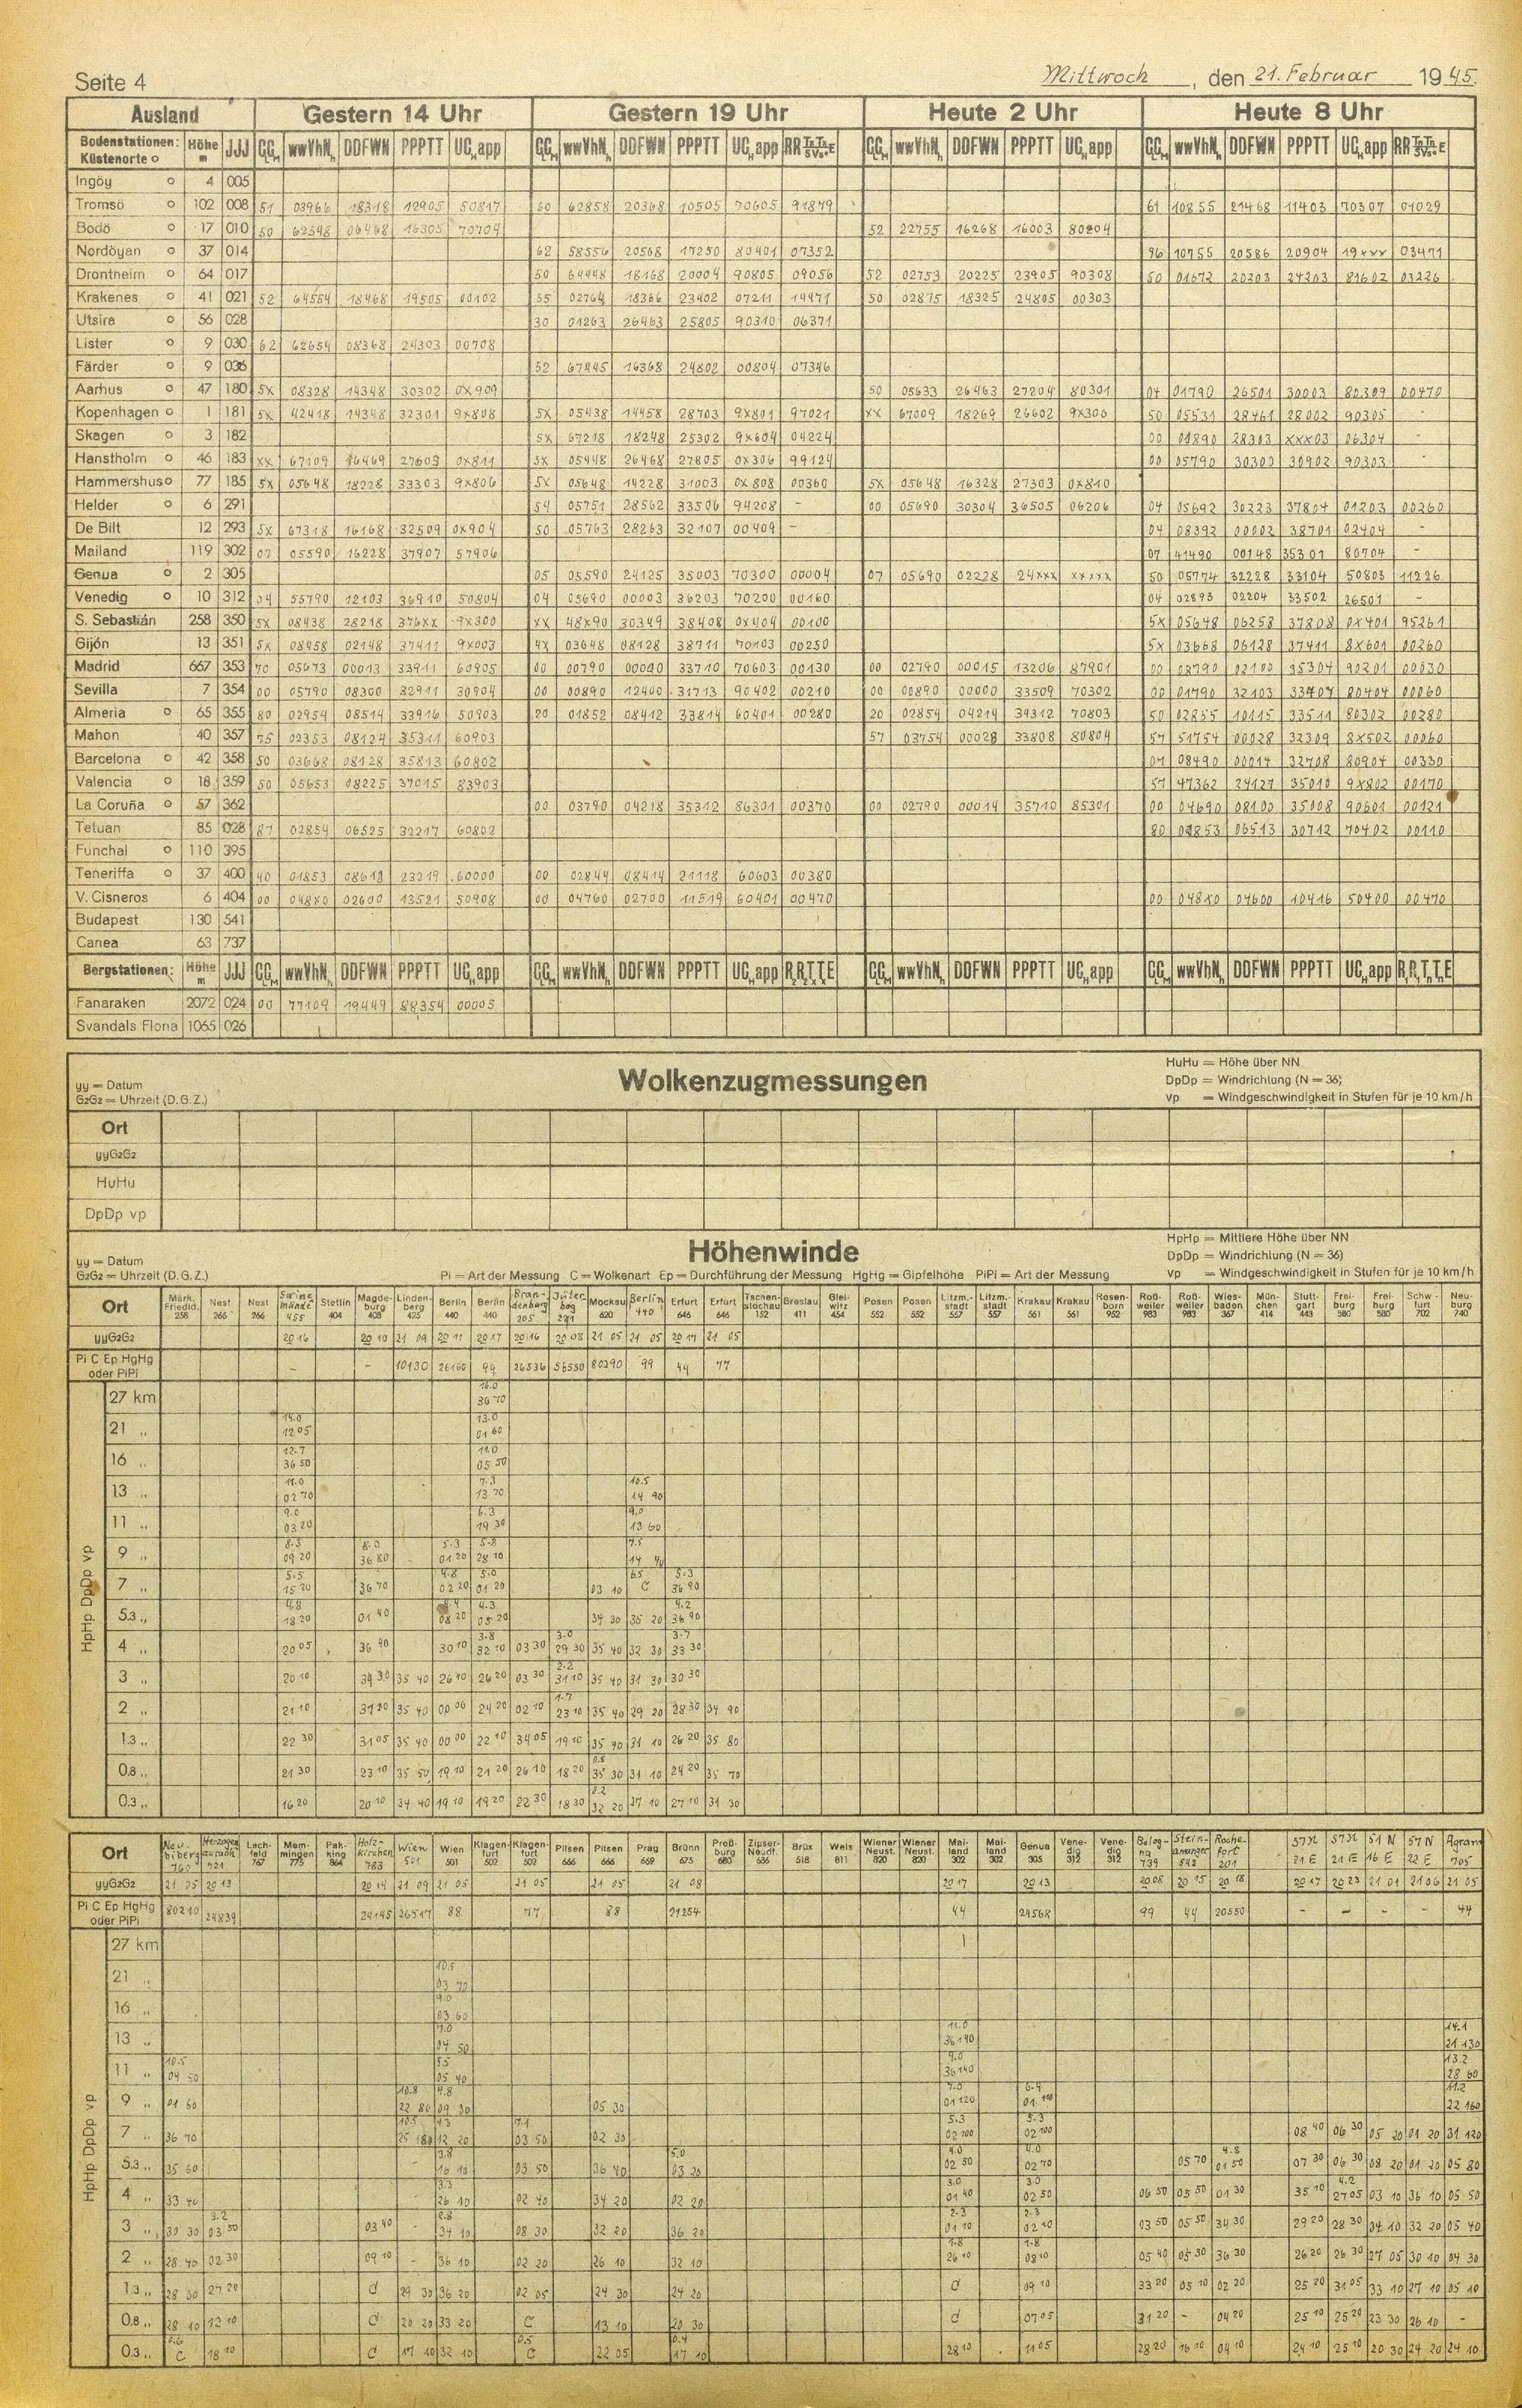 Seite 4
Mittwoch, den 21. Februar 1945.
Ausland Gestern 14 Uhr Gestern 19 Uhr Heute 2 Uhr Heute 8 Uhr
Bodenstationen: Küstenorte o Höhe m JJJ
Ingöy o 4 005
Tromsö o 102 008 51 03966 18318 12905 50817 60 62858 20368 10505 70605 91849 61 10855 21468 11403 70307 01029
Bodö o 17 010 50 62548 06468 16305 70704 52 22755 16268 16003 80204
Nordöyan o 37 014 62 58556 20568 17250 80401 07352 96 10755 20586 20904 19xxx 03471
Drontheim o 64 017 50 64448 18168 20004 90805 09056 52 02753 20225 23905 90308 50 01672 20203 24203 81602 03226
Krakenes o 41 021 52 64554 18468 19505 00102 55 02764 18366 23402 07211 14471 50 02875 18325 24805 00303
Utsira o 56 028 30 01263 26463 25805 90310 06371
Lister o 9 030 62 62654 08368 24303 00708
Färder o 9 036 52 67445 16368 24802 00804 07346
Aarhus o 47 180 5x 08328 14348 30302 0x909 50 05633 26463 27204 80301 04 01790 26501 30003 80309 00470
Kopenhagen o 1 181 5x 42418 14348 32301 9x808 5x 05438 14458 28703 9x801 97021 xx 67009 18269 26602 9x306 50 05531 28461 28002 90305 -
Skagen o 3 182 5x 67218 18248 25302 9x604 04224 00 01890 28303 xxx03 06304 -
Hanstholm o 46 183 xx 67109 16469 27603 0x811 5x 05448 26468 27805 0x306 99124 00 05790 30300 30902 90303 -
Hammershus o 77 185 5x 05648 18228 33303 9x806 5x 05648 14228 31003 0x808 00360 5x 05648 16328 27303 0x810
Helder o 6 291 54 05751 28562 33506 94208 - 00 05690 30304 36505 06206 04 05692 30223 37804 01203 00260
De Bilt 12 293 5x 67318 16168 32509 0x904 50 05763 28263 32107 00409 - 04 08392 00002 38701 02404 -
Mailand 119 302 07 05590 16228 37907 57906 07 41490 00148 35301 80704 -
Genua o 2 305 05 05590 24125 35003 70300 00004 07 05690 02228 24xxx xxxxx 50 05774 32228 33104 50803 11226
Venedig o 10 312 04 55790 12103 36910 50804 04 05690 00003 36203 70200 00160 04 02893 02204 33502 26501 -
S. Sebastián 258 350 5x 08438 28218 376xx 9x300 xx 48x90 30349 38408 0x404 00100 5x 05648 06258 37808 0x401 95261
Gijón 13 351 5x 08458 02148 37411 9x003 4x 03648 08128 38711 70103 00250 5x 03668 06128 37411 8x601 00260
Madrid 667 353 70 05673 00013 33911 60905 00 00790 00000 33710 70603 00130 00 02790 00015 13206 87901 00 03790 02100 35304 90201 00030
Sevilla 7 354 00 05790 08300 32911 30904 00 00890 12400 31713 90402 00210 00 00890 00000 33509 70302 00 01790 32103 33707 80404 00060
Almeria o 65 355 80 02954 08514 33916 50903 20 01852 08412 33814 60401 00280 20 02854 04214 34312 70803 50 02855 10115 33511 80302 00280
Mahon 40 357 75 02353 08124 35311 60903 57 03754 00028 33808 80804 57 51754 00028 32309 8x502 00060
Barcelona o 42 358 50 03668 08128 35813 60802 07 08490 00014 32708 80904 00330
Valencia o 18 359 50 05653 08225 37015 83903 57 47362 24127 35010 9x802 00170
La Coruña o 57 362 00 03790 04218 35312 86301 00370 00 02790 00014 35710 85301 00 04690 08100 35008 90601 00121
Tetuan 85 028 87 02854 06525 32217 60802 80 02853 06513 30712 70402 00110
Funchal o 110 395
Teneriffa o 37 400 40 01853 08618 23219 60000 00 02844 08414 21118 60603 00380
V. Cisneros 6 404 00 048x0 02600 13521 50908 00 04760 02700 11519 60401 00470 00 04810 04600 10416 50400 00470
Budapest 130 541
Canea 63 737
Bergstationen: Höhe m JJJ
Fanaraken 2072 024 00 77109 19449 88354 00005
Svandals Flona 1065 026
Wolkenzugmessungen
yy = Datum
G₂G₂ = Uhrzeit (D.G.Z.)
HuHu = Höhe über NN
DpDp = Windrichtung (N = 36)
vp = Windgeschwindigkeit in Stufen für je 10 km/h
Ort
yyG₂G₂
HuHu
DpDp vp
Höhenwinde
yy = Datum
G₂G₂ = Uhrzeit (D.G.Z.)
Pi = Art der Messung C = Wolkenart Ep = Durchführung der Messung HgHg = Gipfelhöhe PiPi = Art der Messung
HpHp = Mittlere Höhe über NN
DpDp = Windrichtung (N = 36)
vp = Windgeschwindigkeit in Stufen für je 10 km/h
Ort Märk. Friedld. 258 Nest 266 Nest 266 Swinemünde 455 Stettin 404 Magdeburg 408 Lindenberg 425 Berlin 440 Berlin 440 Brandenburg 205 Jüterbog 271 Mockau 620 Berlin 440 Erfurt 646 Erfurt 646 Tschenstochau 152 Breslau 411 Gleiwitz 454 Posen 552 Posen 552 Litzm.stadt 557 Litzm.stadt 557 Krakau 561 Krakau 561 Rosenborn 952 Roßweiler 983 Roßweiler 983 Wiesbaden 367 München 414 Stuttgart 443 Freiburg 580 Freiburg 580 Schwfurt 702 Neuburg 740
yyG₂G₂ 20 16 20 10 21 09 20 11 20 17 20 16 20 08 21 05 21 05 20 17 21 05
Pi C Ep HgHg oder PiPi - - 10130 26160 99 26536 56550 80290 99 44 77
HpHp DpDp vp
27 km 16.0 36 70
21 „ 14.0 12 05 13.0 01 60
16 „ 12.7 36 50 11.0 05 50
13 „ 11.0 02 70 7.3 13 70 10.5 14 90
11 „ 9.0 03 20 6.3 19 30 9.0 13 60
9 „ 8.3 09 20 8.0 36 80 5.3 01 20 5.8 28 10 7.5 14 40
7 „ 5.5 15 20 36 70 4.8 02 20 5.0 01 20 03 10 6.5 C 5.3 36 90
5.3 „ 4.8 18 20 01 40 08 20 4.3 05 20 34 30 35 20 4.2 36 90
4 „ 20 05 36 40 30 10 3.8 32 10 03 30 3.0 29 30 35 40 32 30 3.7 33 30
3 „ 20 10 34 30 35 40 26 10 26 20 03 30 2.2 31 10 35 40 31 30 30 30
2 „ 21 10 31 20 35 40 00 00 24 20 02 10 1.7 23 10 35 40 29 20 28 30 34 90
1.3 „ 22 30 31 05 35 40 00 00 22 10 34 05 19 10 35 40 31 10 26 20 35 80
0.8 „ 21 30 23 10 35 50 19 10 21 20 26 10 18 20 0.5 35 30 31 10 24 20 35 70
0.3 „ 16 20 20 10 34 40 19 10 19 20 22 30 18 30 0.2 32 20 27 10 27 10 31 30
Ort Neubiberg 760 Herzogenaurach 721 Lechfeld 767 Memmingen 775 Pakking 864 Holzkirchen 783 Wien 501 Wien 501 Klagenfurt 502 Klagenfurt 502 Pilsen 666 Pilsen 666 Prag 659 Brünn 675 Preßburg 680 Zipser-Neudf. 686 Brüx 518 Wels 811 Wiener Neust. 820 Wiener Neust. 820 Mailand 302 Mailand 302 Genua 305 Venedig 312 Venedig 312 Bologna 739 Steinamanger 542 Rochefort 201 57N 21 E 57N 21 E 51 N 16 E 57 N 22 E Agram 705
yyG₂G₂ 21 05 20 13 20 14 21 09 21 05 21 05 21 05 21 08 20 17 20 13 20 08 20 15 20 18 20 17 20 23 21 01 21 06 21 05
Pi C Ep HgHg oder PiPi 80210 24839 24145 26517 88 77 88 21254 44 24568 99 44 20550 - - - - 44
HpHp DpDp vp
27 km
21 „ 10.5 03 70
16 „ 9.0 03 60
13 „ 7.0 04 50 11.0 36 140 14.1 21 130
11 „ 10.5 04 50 5.5 05 40 9.0 36 140 13.2 28 60
9 „ 01 60 10.8 22 80 4.8 09 30 05 30 7.0 01 120 6.4 01 110 11.2 22 160
7 „ 36 70 10.5 25 180 4.3 12 20 7.1 03 50 02 30 5.3 02 100 5.3 02 100 08 40 06 30 05 20 01 20 31 120
5.3 „ 35 60 - 3.8 16 10 03 50 36 40 5.0 03 20 4.0 02 50 4.0 02 70 05 70 4.8 01 50 07 30 06 30 08 20 01 20 05 80
4 „ 33 40 3.3 26 10 02 40 34 20 02 20 3.0 01 40 3.0 02 50 06 50 05 50 01 30 35 10 4.2 27 05 03 10 36 10 05 50
3 „ 30 30 3.2 03 50 03 40 - 2.8 34 10 08 30 32 20 36 20 2.3 01 10 2.3 02 10 03 50 05 50 34 30 29 20 28 30 04 10 32 20 05 40
2 „ 28 40 02 30 09 10 - 36 10 02 20 26 10 32 10 1.8 26 10 1.8 08 10 05 40 05 30 36 30 26 20 26 30 27 05 30 10 04 30
1.3 „ 28 30 27 20 d 29 30 36 20 02 05 24 30 24 20 d 09 10 33 20 05 10 02 20 25 20 31 05 33 10 27 10 05 10
0.8 „ 28 10 12 10 d 20 20 33 20 C 13 10 20 30 d 07 05 31 20 - 04 20 25 10 25 20 23 30 26 10 -
0.3 „ 0.6 C 18 10 d 17 10 32 10 0.5 C 22 05 0.4 17 10 28 10 11 05 28 20 16 10 04 10 24 10 25 10 20 30 24 20 24 10